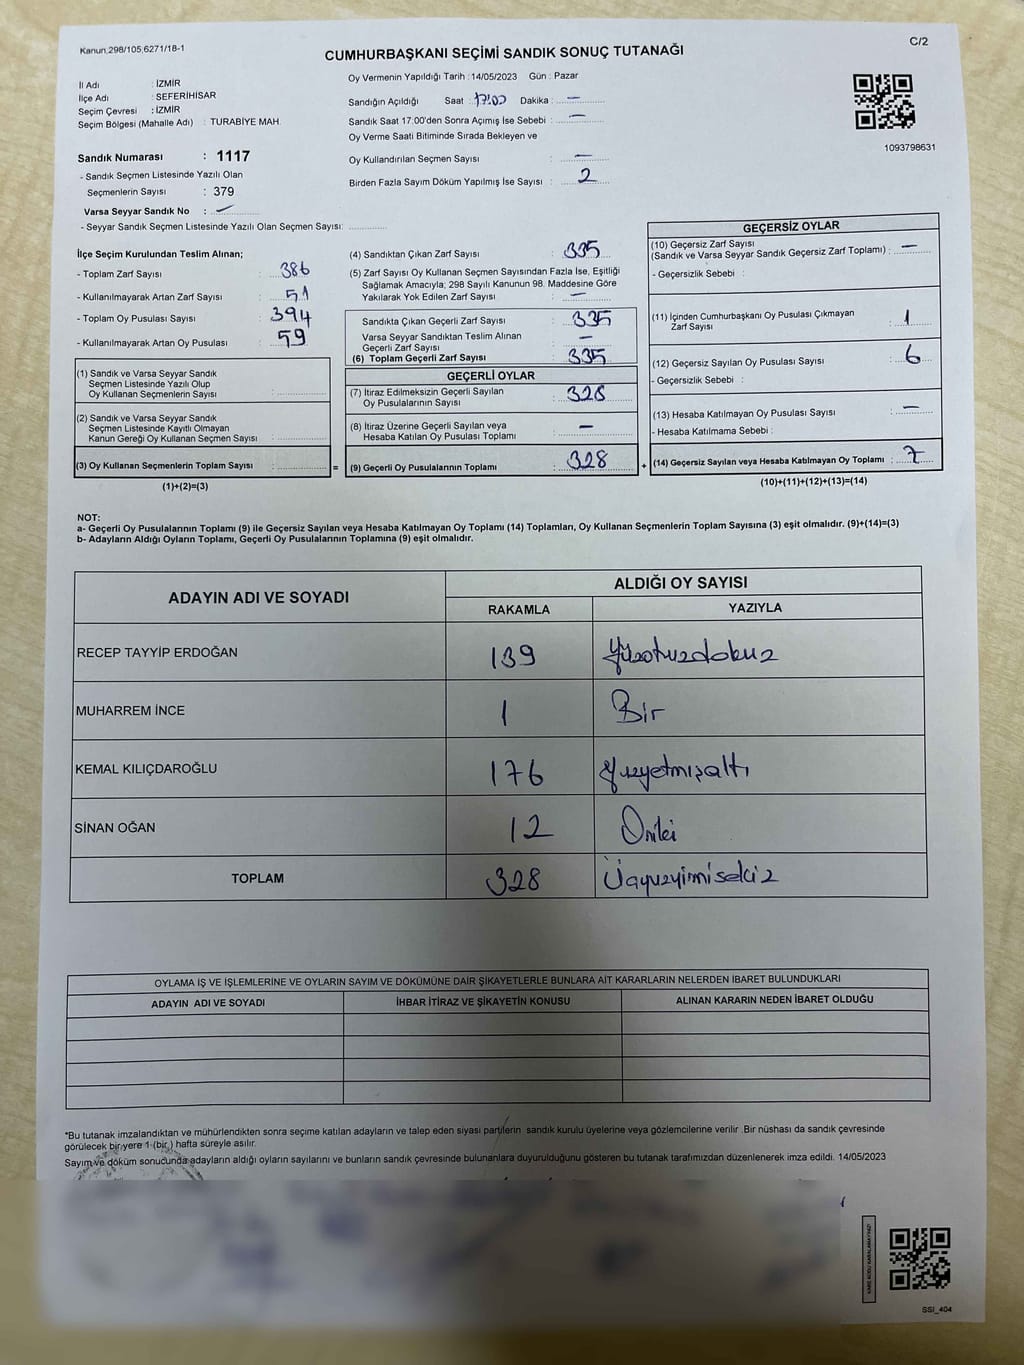 Kanun,298/105,6271/18-1
C/2
CUMHURBAŞKANI SEÇİMİ SANDIK SONUÇ TUTANAĞI
İl Adı : İZMİR
İlçe Adı : SEFERİHİSAR
Seçim Çevresi : İZMİR
Seçim Bölgesi (Mahalle Adı) : TURABİYE MAH.
Sandık Numarası : 1117
- Sandık Seçmen Listesinde Yazılı Olan
Seçmenlerin Sayısı : 379
Varsa Seyyar Sandık No : —
- Seyyar Sandık Seçmen Listesinde Yazılı Olan Seçmen Sayısı:
Oy Vermenin Yapıldığı Tarih : 14/05/2023 Gün : Pazar
Sandığın Açıldığı Saat : 17:00 Dakika : —
Sandık Saat 17:00'den Sonra Açımış İse Sebebi : —
Oy Verme Saati Bitiminde Sırada Bekleyen ve
Oy Kullandırılan Seçmen Sayısı : —
Birden Fazla Sayım Döküm Yapılmış İse Sayısı : 2
1093798631
İlçe Seçim Kurulundan Teslim Alınan;
- Toplam Zarf Sayısı : 386
- Kullanılmayarak Artan Zarf Sayısı : 51
- Toplam Oy Pusulası Sayısı : 394
- Kullanılmayarak Artan Oy Pusulası : 59
(1) Sandık ve Varsa Seyyar Sandık
Seçmen Listesinde Yazılı Olup
Oy Kullanan Seçmenlerin Sayısı :
(2) Sandık ve Varsa Seyyar Sandık
Seçmen Listesinde Kayıtlı Olmayan
Kanun Gereği Oy Kullanan Seçmen Sayısı :
(3) Oy Kullanan Seçmenlerin Toplam Sayısı :
(1)+(2)=(3)
(4) Sandıktan Çıkan Zarf Sayısı : 335
(5) Zarf Sayısı Oy Kullanan Seçmen Sayısından Fazla İse, Eşitliği
Sağlamak Amacıyla; 298 Sayılı Kanunun 98. Maddesine Göre
Yakılarak Yok Edilen Zarf Sayısı : —
Sandıkta Çıkan Geçerli Zarf Sayısı : 335
Varsa Seyyar Sandıktan Teslim Alınan
Geçerli Zarf Sayısı : —
(6) Toplam Geçerli Zarf Sayısı : 335
GEÇERLİ OYLAR
(7) İtiraz Edilmeksizin Geçerli Sayılan
Oy Pusulalarının Sayısı : 328
(8) İtiraz Üzerine Geçerli Sayılan veya
Hesaba Katılan Oy Pusulası Toplamı : —
= (9) Geçerli Oy Pusulalarının Toplamı : 328
GEÇERSİZ OYLAR
(10) Geçersiz Zarf Sayısı
(Sandık ve Varsa Seyyar Sandık Geçersiz Zarf Toplamı) : —
- Geçersizlik Sebebi :
(11) İçinden Cumhurbaşkanı Oy Pusulası Çıkmayan
Zarf Sayısı : 1
(12) Geçersiz Sayılan Oy Pusulası Sayısı : 6
- Geçersizlik Sebebi :
(13) Hesaba Katılmayan Oy Pusulası Sayısı : —
- Hesaba Katılmama Sebebi :
+ (14) Geçersiz Sayılan veya Hesaba Katılmayan Oy Toplamı : 7
(10)+(11)+(12)+(13)=(14)
NOT:
a- Geçerli Oy Pusulalarının Toplamı (9) ile Geçersiz Sayılan veya Hesaba Katılmayan Oy Toplamı (14) Toplamları, Oy Kullanan Seçmenlerin Toplam Sayısına (3) eşit olmalıdır. (9)+(14)=(3)
b- Adayların Aldığı Oyların Toplamı, Geçerli Oy Pusulalarının Toplamına (9) eşit olmalıdır.
ADAYIN ADI VE SOYADI
ALDIĞI OY SAYISI
RAKAMLA YAZIYLA
RECEP TAYYİP ERDOĞAN 139 Yüzotuzdokuz
MUHARREM İNCE 1 Bir
KEMAL KILIÇDAROĞLU 176 Yuzyetmişaltı
SİNAN OĞAN 12 Oniki
TOPLAM 328 Üçyuzyirmisekiz
OYLAMA İŞ VE İŞLEMLERİNE VE OYLARIN SAYIM VE DÖKÜMÜNE DAİR ŞİKAYETLERLE BUNLARA AİT KARARLARIN NELERDEN İBARET BULUNDUKLARI
ADAYIN ADI VE SOYADI İHBAR İTİRAZ VE ŞİKAYETİN KONUSU ALINAN KARARIN NEDEN İBARET OLDUĞU
*Bu tutanak imzalandıktan ve mühürlendikten sonra seçime katılan adayların ve talep eden siyasi partilerin sandık kurulu üyelerine veya gözlemcilerine verilir .Bir nüshası da sandık çevresinde
görülecek bir yere 1 (bir ) hafta süreyle asılır.
Sayım ve döküm sonucunda adayların aldığı oyların sayılarını ve bunların sandık çevresinde bulunanlara duyurulduğunu gösteren bu tutanak tarafımızdan düzenlenerek imza edildi. 14/05/2023
KARE KODU KARALAMAYINIZ!
SSI_404